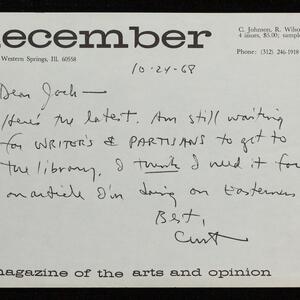 december
Western Springs, Ill. 60558
C. Johnson, R. Wilso
4 issues, $5.00; sampl
Phone: (312) 246-1918
10-24-68
Dear Jack—
Here's the latest. Am still waiting
for WRITER'S & PARTISANS to get to
the library. I think I need it for
an article I'm doing on Easterners
Best,
Curt
magazine of the arts and opinion